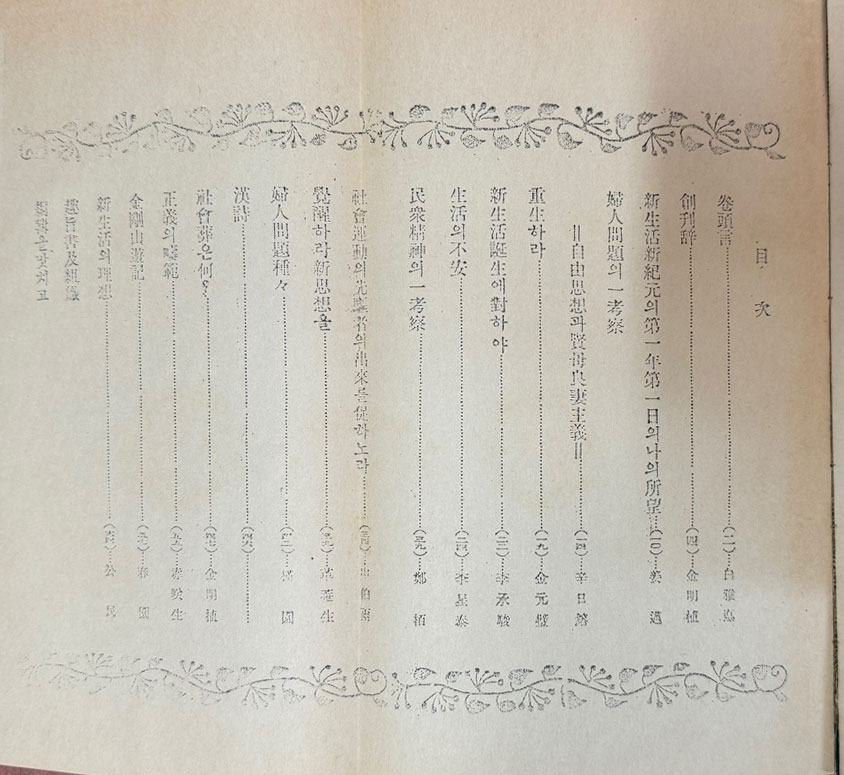 目次
卷頭言……(二)…白雅悳
創刊辞……(四)…金明植
新生活新紀元의第一年第一日의나의所望…(一〇)…姜邁
婦人問題의一考察
‖自由思想과賢母良妻主義‖……(一四)…辛日鎔
重生하라……(一九)…金元璧
新生活誕生에對하야……李承駿
生活의不安……李星泰
民衆精神의一考察……鄭栢
社會運動의先驅者의出來를促하노라……申伯雨
覺醒하라新思想을……生
婦人問題種々……園
漢詩……
社會葬은何?……金明植
正義의……赤咲生
金剛山遊記……春園
新生活의理想……公民
趣旨書及組織
編輯을맛치고